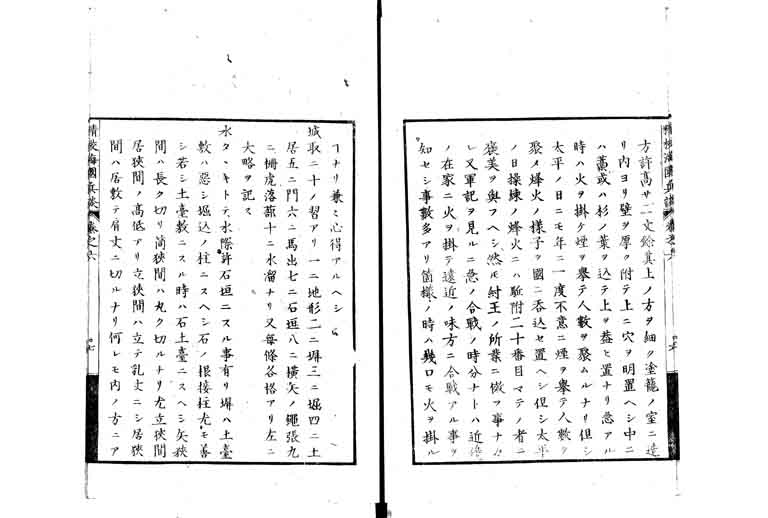 方許高サ二丈餘其上ノ方ヲ細ク塗籠ノ室ニ造
リ内ヨリ壁ヲ厚ク附テ上ニ穴ヲ明置ヘシ中ニ
ハ藁或ハ杉ノ葉ヲ込テ上ヲ葢ヒ置ナリ急アル
時ハ火ヲ掛ケ煙ヲ擧テ人數ヲ聚ムルナリ但シ
太平ノ日ニモ年ニ一度不意ニ煙ヲ擧テ人數ヲ
聚メ烽火ノ様子ヲ國ニ呑込セ置ヘシ但シ太平
ノ日操練ノ烽火ニハ駈附二十番目マテノ者ニ
褒美ヲ與フヘシ然モ紂王ノ所業ニ倣フ事ナカ
レ又軍記ヲ見ルニ急ノ合戰ノ時分ナトハ近
ノ在家ニ火ヲ掛テ遠近ノ味方ニ合戰アル事ヲ
知セシ事數多アリ箇様ノ時ハ幾口モ火ヲ掛ル
精校海國兵談 卷之六
ヿナリ兼々心得アルヘシ
城取ニ十ノ習アリ一ニ地形二ニ塀三ニ堀四ニ土
居五ニ門六ニ馬出七ニ石垣八ニ横矢ノ繩張九
ニ柵虎落蔀十ニ水溜ナリ又毎條各格アリ左ニ
大略ヲ記ス
水タヽキトテ水際許石垣ニスル事有リ塀ハ土臺
數ハ惡シ堀込ノ柱ニスヘシ石ノ根接柱尤モ善
シ若シ土臺數ニスル時ハ石土臺ニスヘシ矢狹
間ハ長ク切リ筒狹間ハ丸ク切ルナリ尤立狹間
居狹間ノ高低アリ立狹間ハ立テ乳丈ニシ居狹
間ハ居敷テ肩丈ニ切ルナリ何レモ内ノ方ニア
精校海國兵談 卷之六